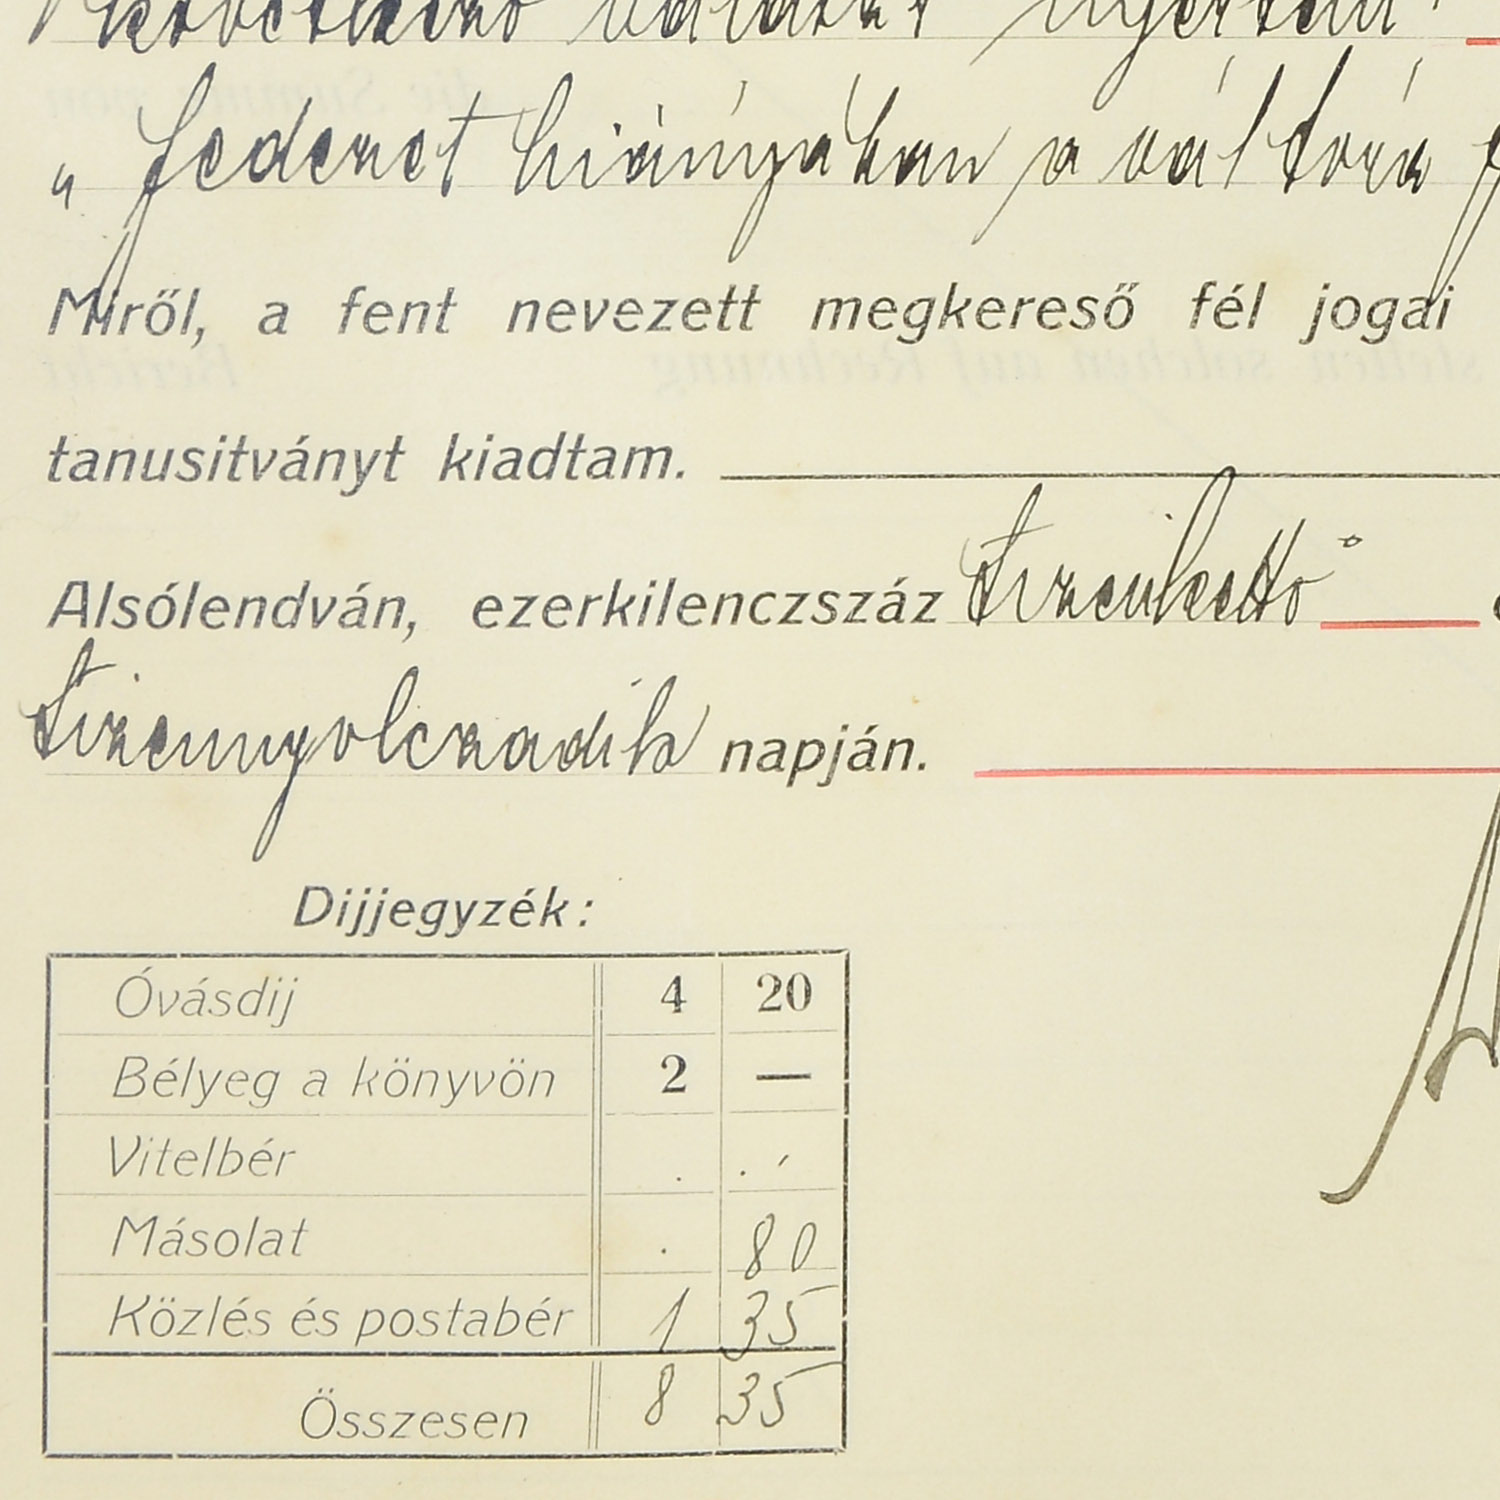 következő választ nyertem:
„fedezet hiányában a váltóra
Miről, a fent nevezett megkereső fél jogai
tanusitványt kiadtam.
Alsólendván, ezerkilenczszáz tizenkettő
tizennyolczadik napján.
Dijjegyzék:
Óvásdij 4 20
Bélyeg a könyvön 2 —
Vitelbér . . ,
Másolat . 80
Közlés és postabér 1 35
Összesen 8 35